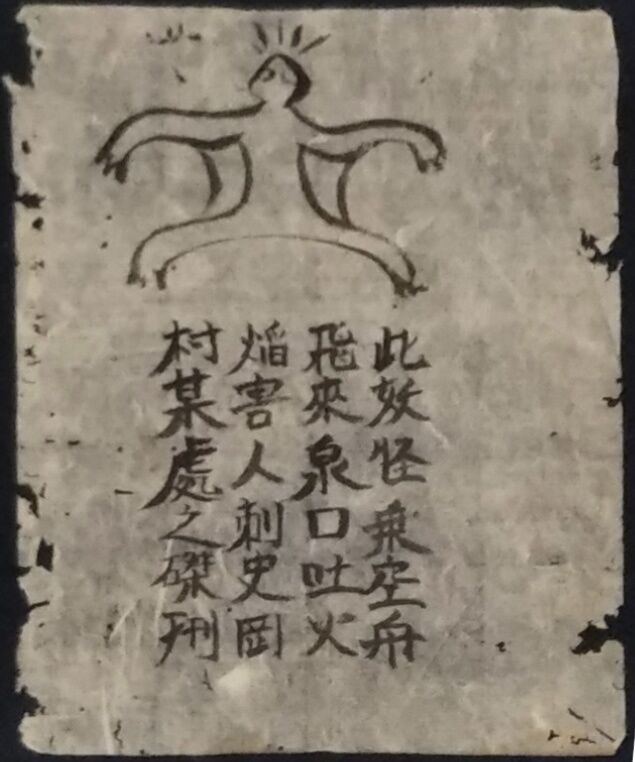 此妖怪乗空舟
飛來泉口吐火
焰害人刺史岡
村某處之磔刑